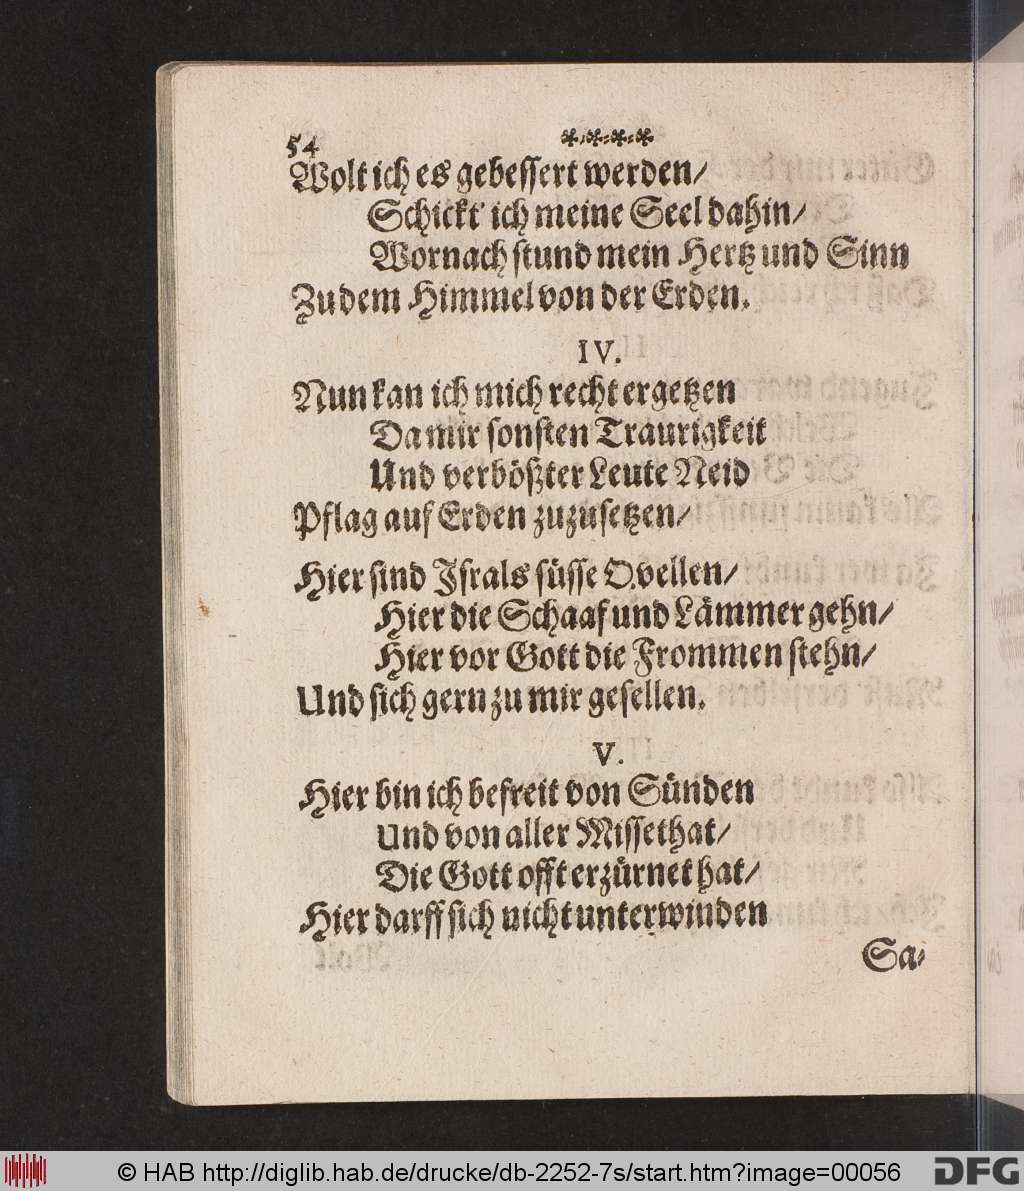 54
Wolt ich es gebessert werden/
Schickt' ich meine Seel dahin/
Wornach stund mein Hertz und Sinn
Zu dem Himmel von der Erden.
IV.
Nun kan ich mich recht ergetzen
Da mir sonsten Traurigkeit
Und verbößter Leute Neid
Pflag auf Erden zuzusetzen/
Hier sind Israls süsse Qvellen/
Hier die Schaaf und Lämmer gehn/
Hier vor Gott die Frommen stehn/
Und sich gern zu mir gesellen.
V.
Hier bin ich befreit von Sünden
Und von aller Missethat/
Die Gott offt erzürnet hat/
Hier darff sich nicht unterwinden
Sa-
© HAB http://diglib.hab.de/drucke/db-2252-7s/start.htm?image=00056
DFG